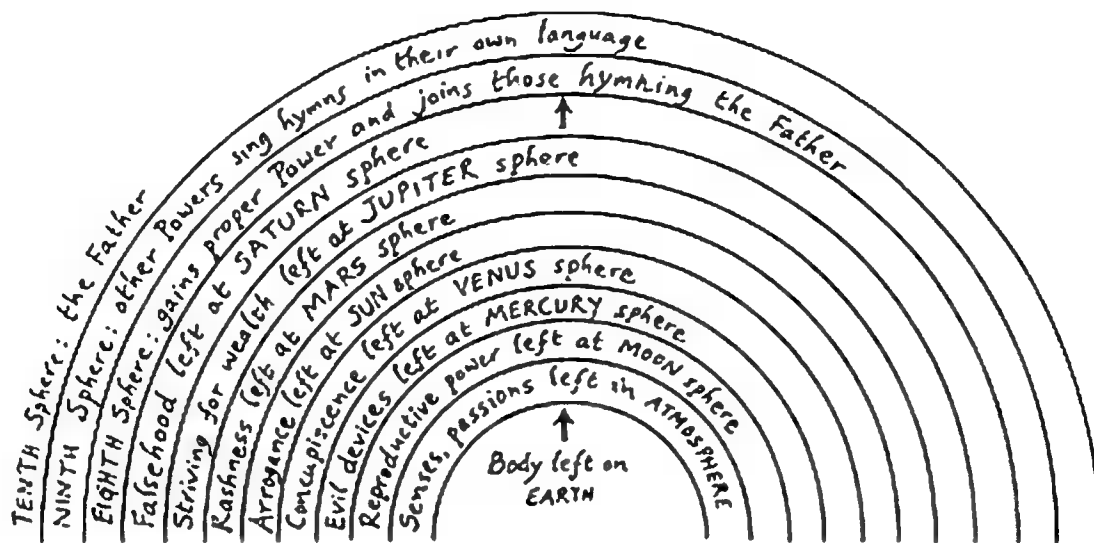 TENTH Sphere: the Father
NINTH Sphere: other Powers sing hymns in their own language
EIGHTH Sphere: gains proper Power and joins those hymning the Father
Falsehood left at SATURN sphere
Striving for wealth left at JUPITER sphere
Rashness left at MARS sphere
Arrogance left at SUN sphere
Concupizcence left at VENUS sphere
Evil devices left at MERCURY sphere
Reproductive power left at MOON sphere
Senses, passions left in ATMOSPHERE
Body left on
EARTH